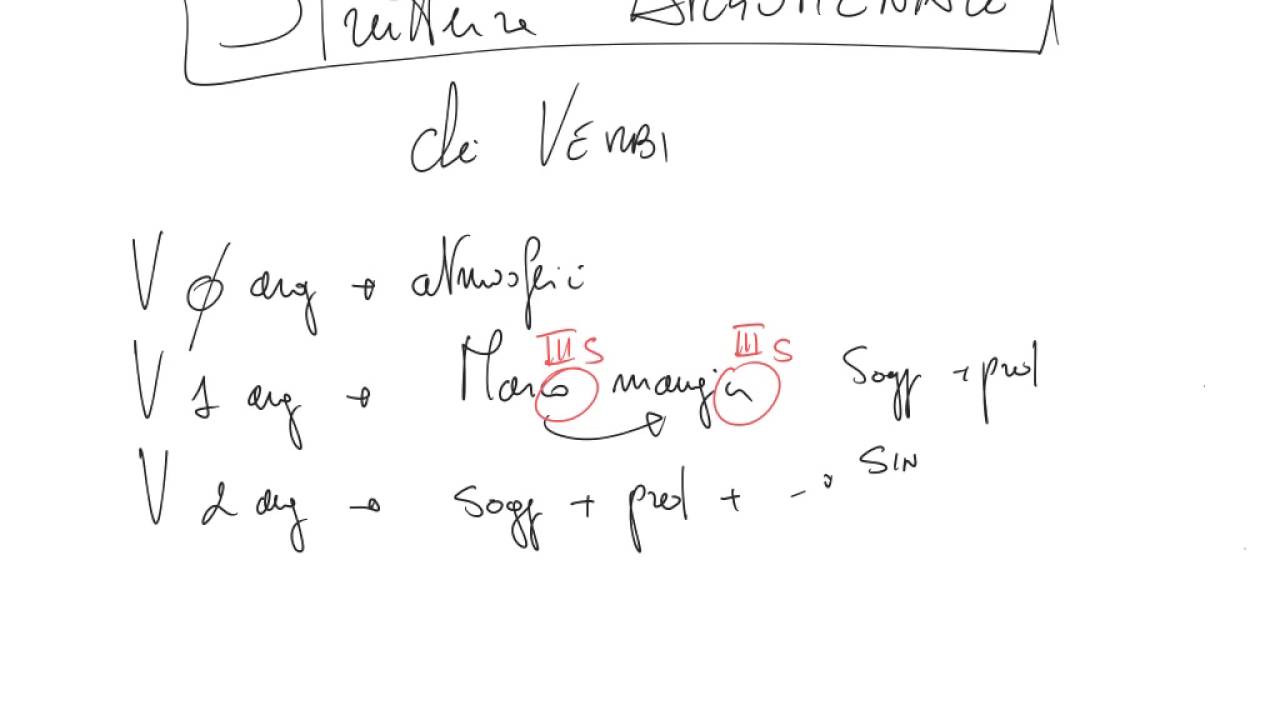 Struttura ARGOMENTALE
dei VERBI
V ϕ arg → atmosferici
III S III S
V 1 arg → Marco mangia Sogg + pred
V 2 arg → Sogg + pred + → SIN